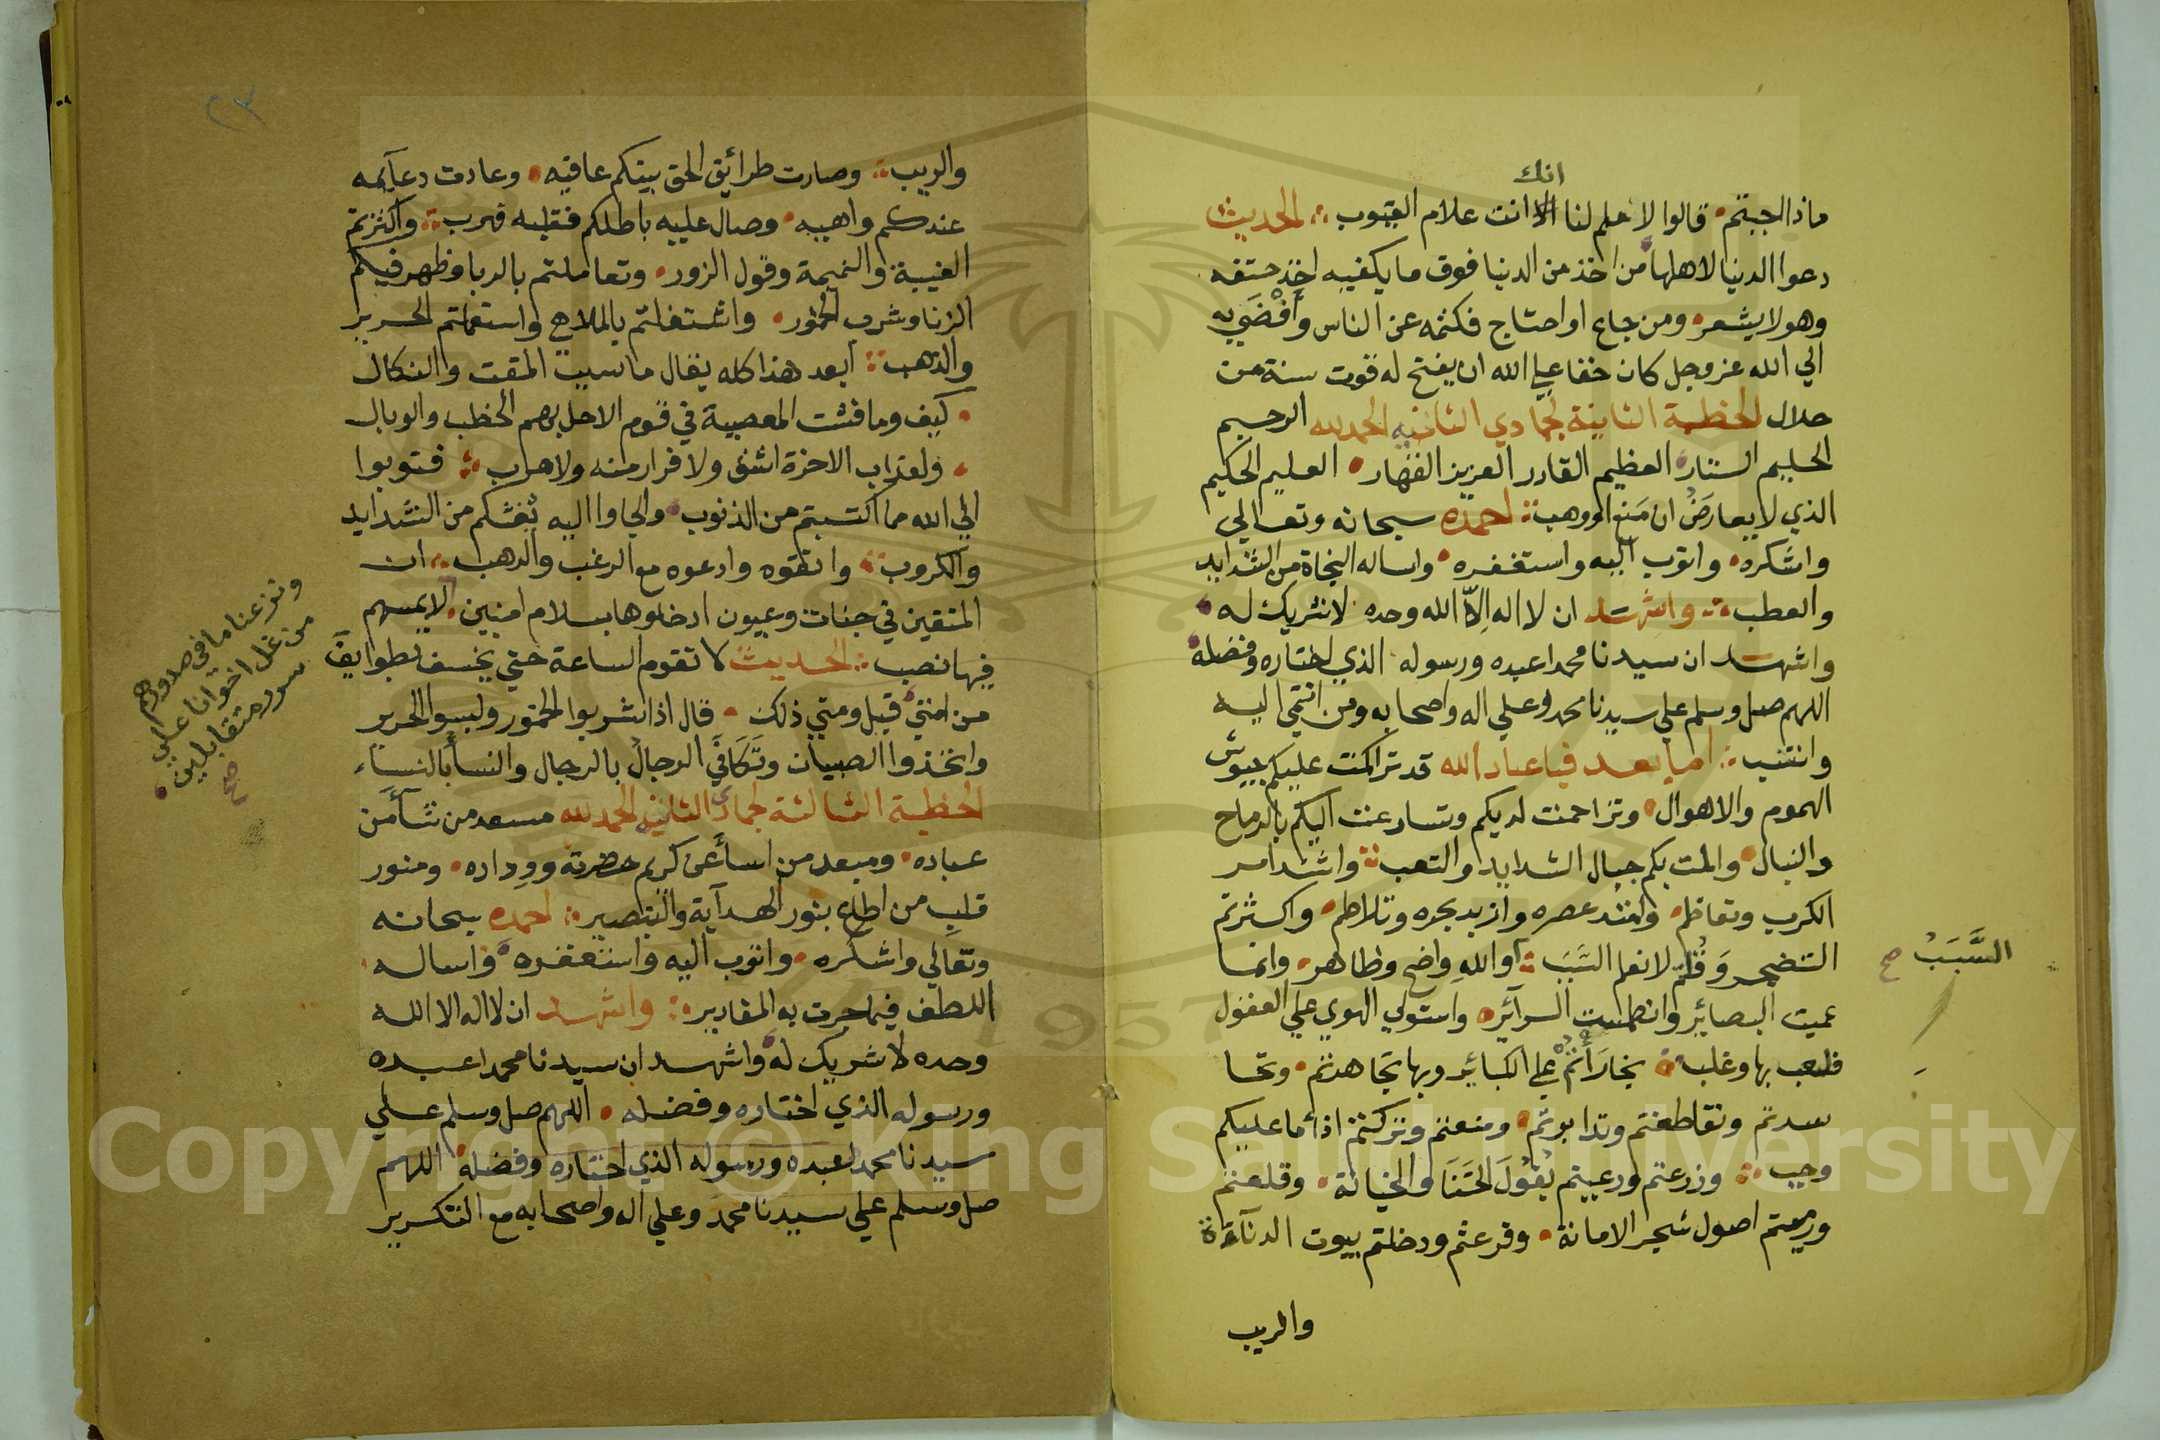 انك
ماذا اجبتم قالوا لا علم لنا انت علام الغيوب الحديث
دعوا الدنيا لاهلها من اخذ من الدنيا فوق ما يكفيه اخذ حتفه
وهو لا يشعر ومن جاع او احتاج فكتمه عن الناس وأفْضَي به
الي الله عز وجل كان حقا علي الله ان يفتح له قوت سنة من
حلال الخطبة الثانية لجمادي الثانيه الحمد لله الرحيم
الحليم الستار العظيم القادر العزيز القهار العليم الحكيم
الذي لا يعارَضُ ان مَنع او وهب احمده سبحانه وتعالي
واشكره واتوب اليه واستغفره واساله النجاة من الشدايد
والعطب واشهد ان لا اله إلاّ الله وحده لا شريك له
واشهد ان سيدنا محمدا عبده ورسوله الذي اختاره وفضله
اللهم صل وسلم علي سيدنا محمد وعلي اله واصحابه ومن انتمي اليه
وانتسب اما بعد فيا عباد الله قد تراكمت عليكم جيوش
الهموم والاهوال وتزاحمت لديكم وتسارعت اليكم بالرماح
والنبال والمت بكم جبال الشدايد والتعب واشتد امر
الكرب وتعاظم وامتد عصره وازبد بحره وتلاطم واكثرتم
التضجر وَقُلتم لا نعلم السَّبَبَ أو واللهِ واضح وظاهر وانما
السَّبَبْ صح
عميت البصائر وانطمست السرآئر واستولي الهوي علي العقول
فلعب بها وغلب تجارَأتم علي الكبائر وبها تجاهرتم وتحا
سدتم وتقاطعتم وتدابرتم ومنعتم وتركتم اذا ما عليكم
وجب وزرعتم ورعيتم بُقوُلَ الخَنَا والخيانة وقلعتم
ورميتم اصول شجر الامانة وقرعتم ودخلتم بيوت الدنآءة
والريب
٢٣
والريب وصارت طرائق الحق بينكم عافيه وعادت دعآيمه
عندكم واهيه وصال عليه باطلكم فغلبه فهرب واكثرتم
الغيبة والنميمة وقول الزور وتعاملتم بالربا وظهر فيكم
الزنا وشرب الخمور واشتغلتم بالملاهي واستعملتم الحرير
والذهب ابعد هذا كله يقال ما سبب المقت والنكال
كيف وما فشت المعصية في قوم الا حل بهم الخطب والوبال
ولعذاب الاخرة اشق ولا فرار منه ولا هرب فتوبوا
الي الله مما اكتسبتم من الذنوب والجاوا اليه يغثكم من الشدايد
والكروب واتقوه وادعوه مع الرغب والرهب ان
المتقين في جنات وعيون ادخلوها بسلام امنين لا يمسهم
ونزعنا ما في صدورهم
من غل اخوانا علي
سرر متقابلين
صح
فيها نصب الحديث لا تقوم الساعة حتي يخسف بطوايفَ
من امتي قيل ومتي ذلك قال اذا شربوا الخمور ولبسوا الحرير
واتخذوا الصبيان وتَكَافَي الرجالُ بالرجال والنسأ بالنسآء
الخطبة الثالثة لجمادي الثانيه الحمد لله مسعد من شآء مَن
عباده ومبعد من اسآء عن كريم حضرته ووداده ومنور
قلبِ من اطاع بنور الهدآية والتبصير احمده سبحانه
وتعالي واشكره واتوب اليه واستغفره واساله
اللطف فيما جرت به المقادير واشهد ان لا اله الا الله
وحده لا شريك له واشهد ان سيدنا محمدا عبده
ورسوله الذي اختاره وفضله اللهم صل وسلم علي
سيدنا محمد عبده ورسوله الذي اختاره وفضله اللهم
صل وسلم علي سيدنا محمد وعلي اله واصحابه مع التكرير
Copyright © King Saud University
1957